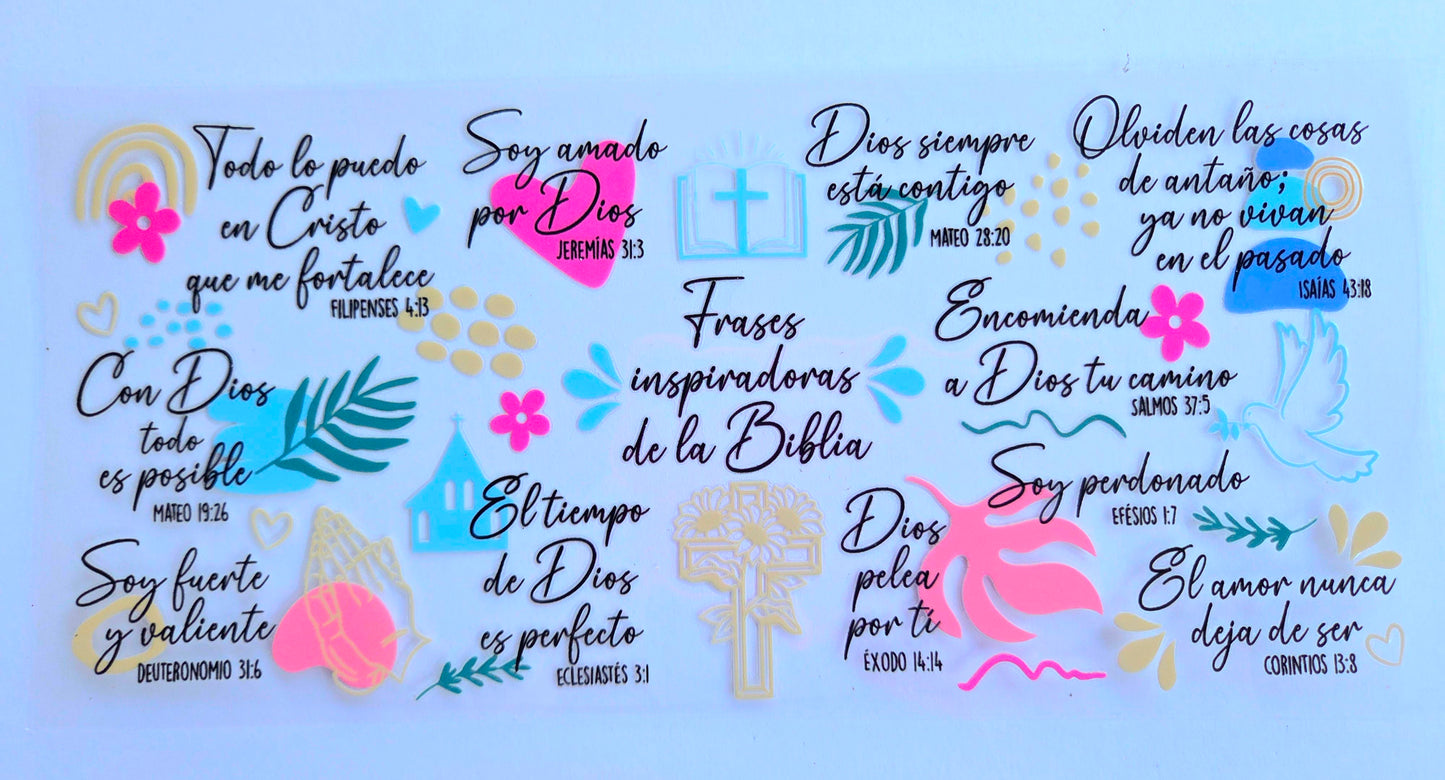 Todo lo puedo
en Cristo
que me fortalece
FILIPENSES 4:13
Soy amado
por Dios
JEREMÍAS 31:3
Dios siempre
está contigo
MATEO 28:20
Olviden las cosas
de antaño;
ya no vivan
en el pasado
ISAÍAS 43:18
Con Dios
todo
es posible
MATEO 19:26
Frases
inspiradoras
de la Biblia
Encomienda
a Dios tu camino
SALMOS 37:5
Soy perdonado
EFÉSIOS 1:7
Soy fuerte
y valiente
DEUTERONOMIO 31:6
El tiempo
de Dios
es perfecto
ECLESIASTÉS 3:1
Dios
pelea
por tí
ÉXODO 14:14
El amor nunca
deja de ser
CORINTIOS 13:8